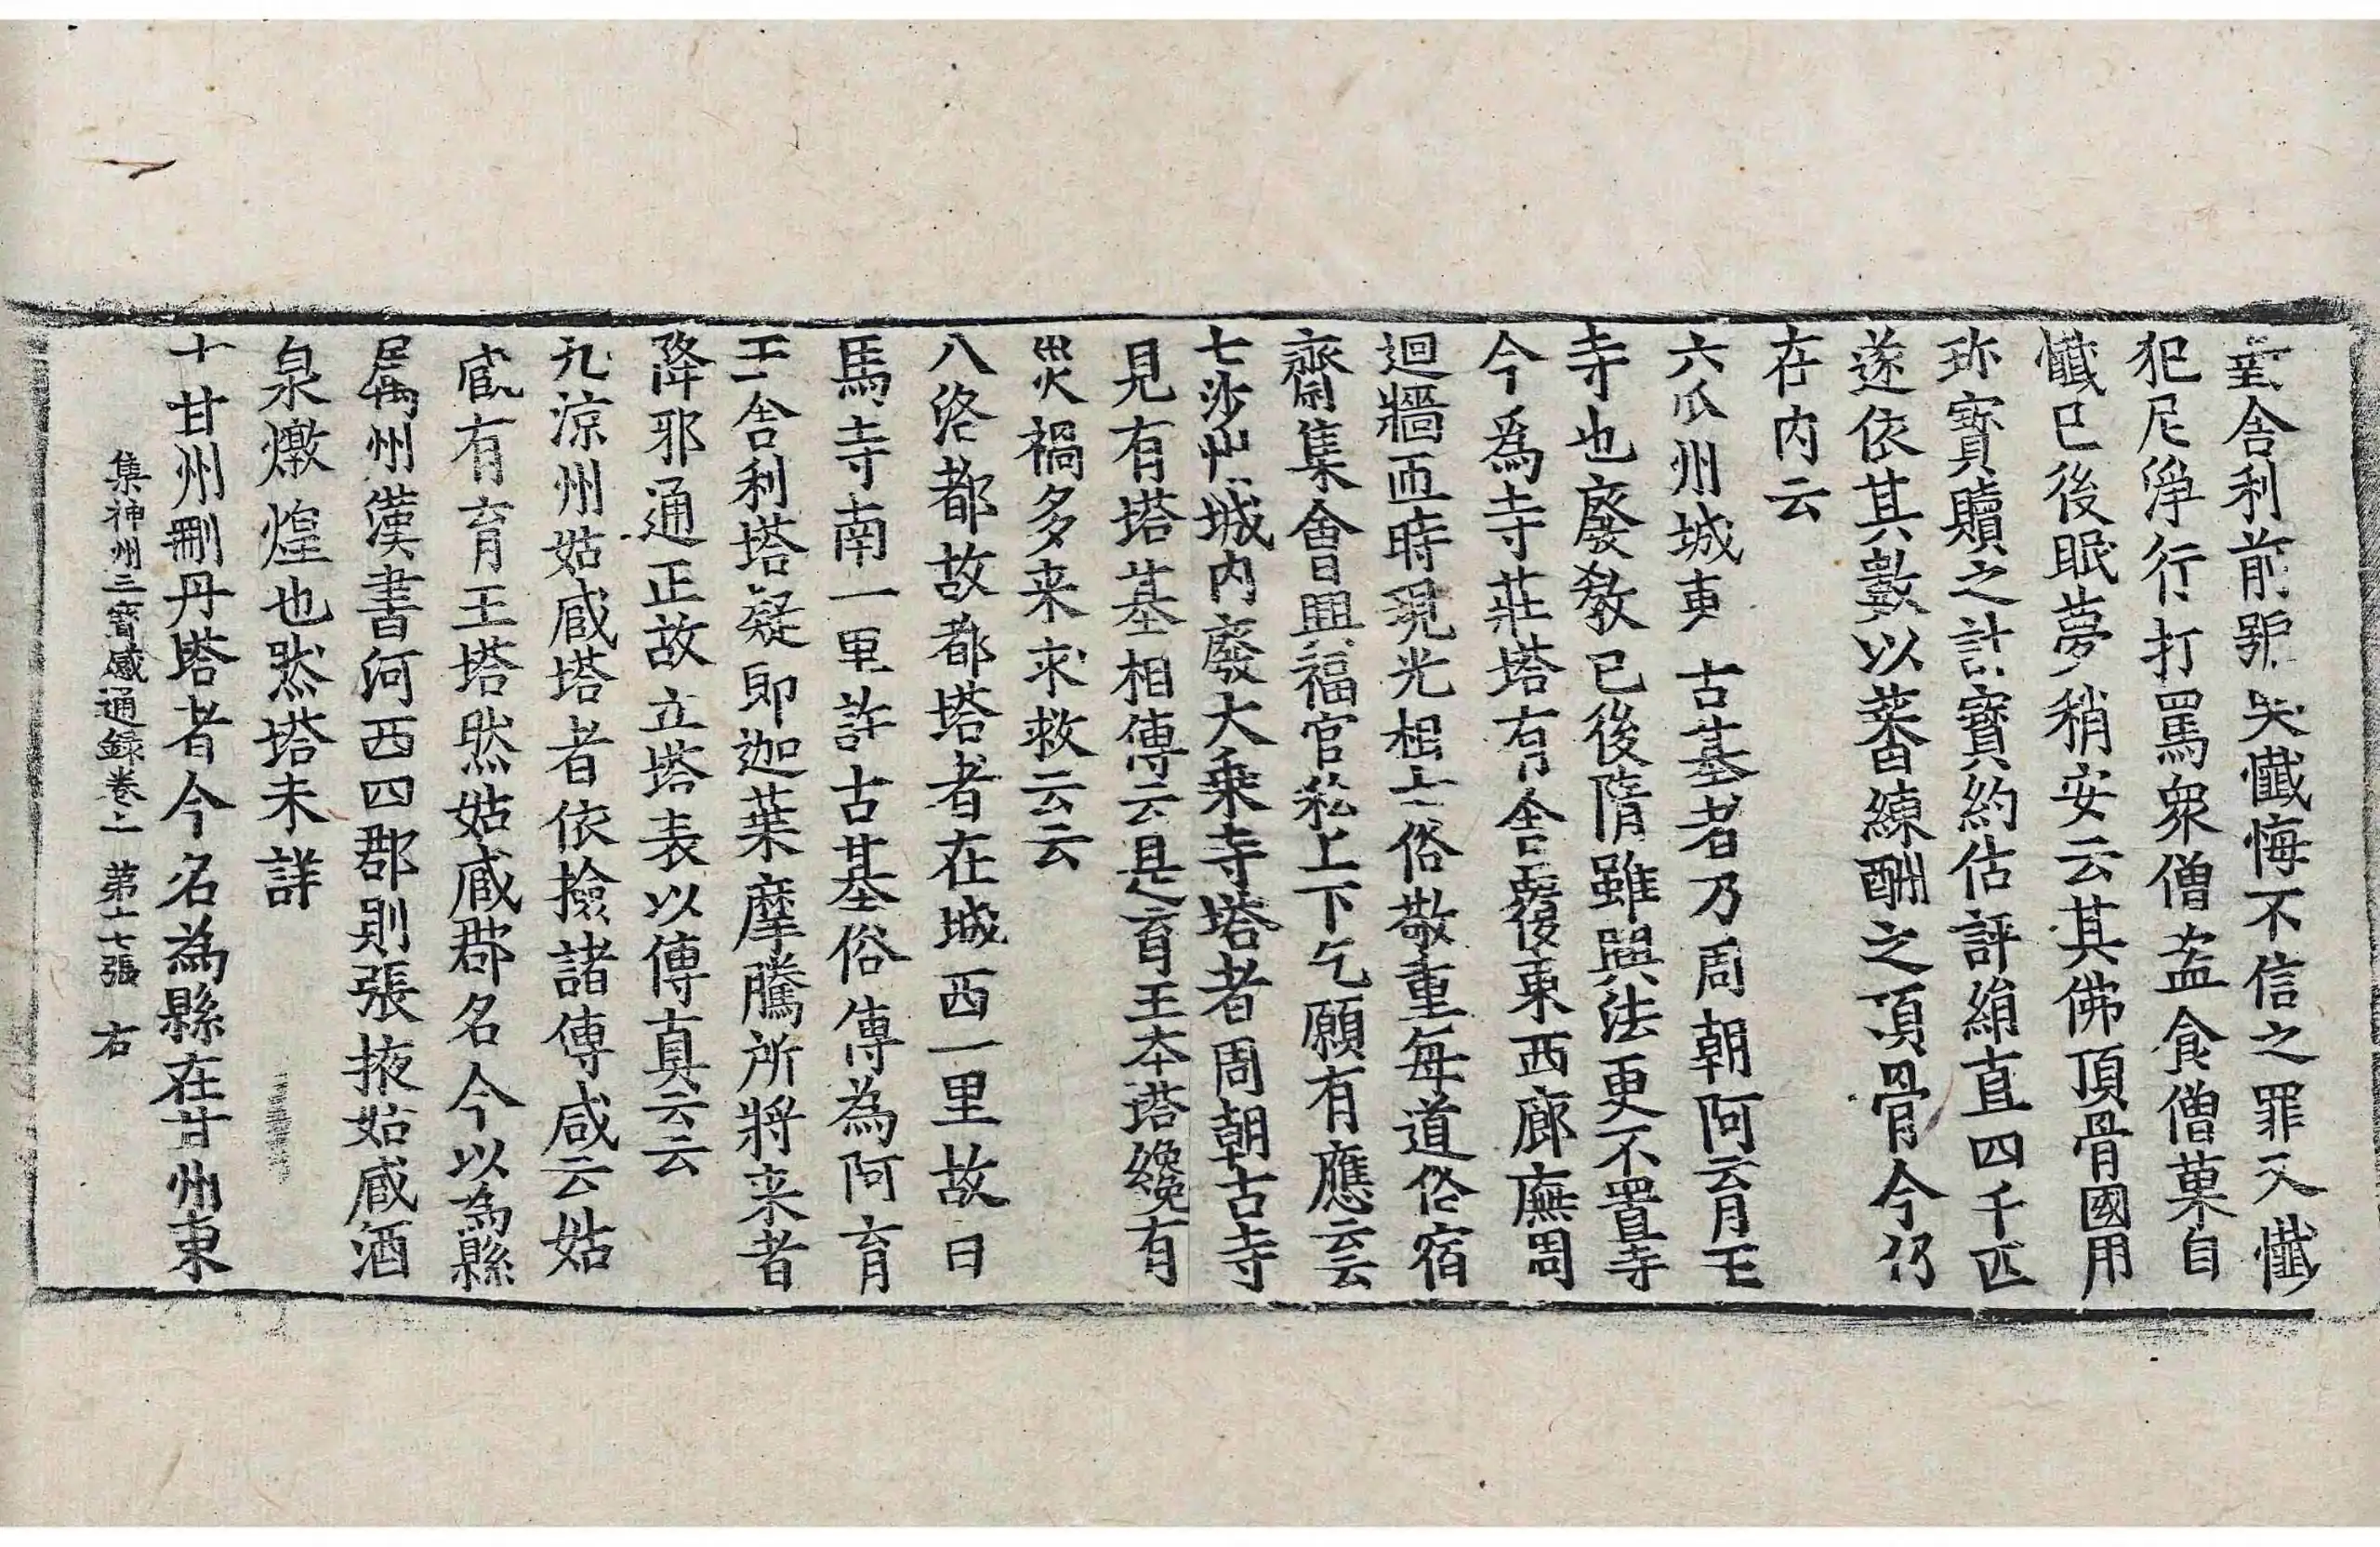 至舍利前號哭懺悔不信之罪又懺
犯尼淨行打罵衆僧盗食僧菓自
懺已後眠夢稍安云其佛頂骨國用
珎寳贖之計寳約估評絹直四千匹
遂依其數以蕃練酬之頂骨今仍
在内云
六瓜州城東古基者乃周朝阿育王
寺也廢教已後隋雖興法更不置寺
今爲寺莊塔有舍覆東西廊廡周
迴牆匝時現光相士俗敬重每道俗宿
齋集會興福官私上下乞願有應云云
七沙州城内廢大乗寺塔者周朝古寺
見有塔基相傳云是育王本塔纔有
災禍多来求救云云
八洛都故都塔者在城西一里故日
馬寺南一里許古基俗傳為阿育
王舍利塔疑即迦葉摩騰所將来者
降邪通正故立塔表以傳真云云
九涼州姑臧塔者依撿諸傳咸云姑
臧有育王塔然姑臧郡名今以為縣
屬州漢書河西四郡則張掖姑臧酒
泉燉煌也然塔未詳
十甘州刪丹塔者今名為縣在甘州東
集神州三寳感通録卷上 第十七張 右